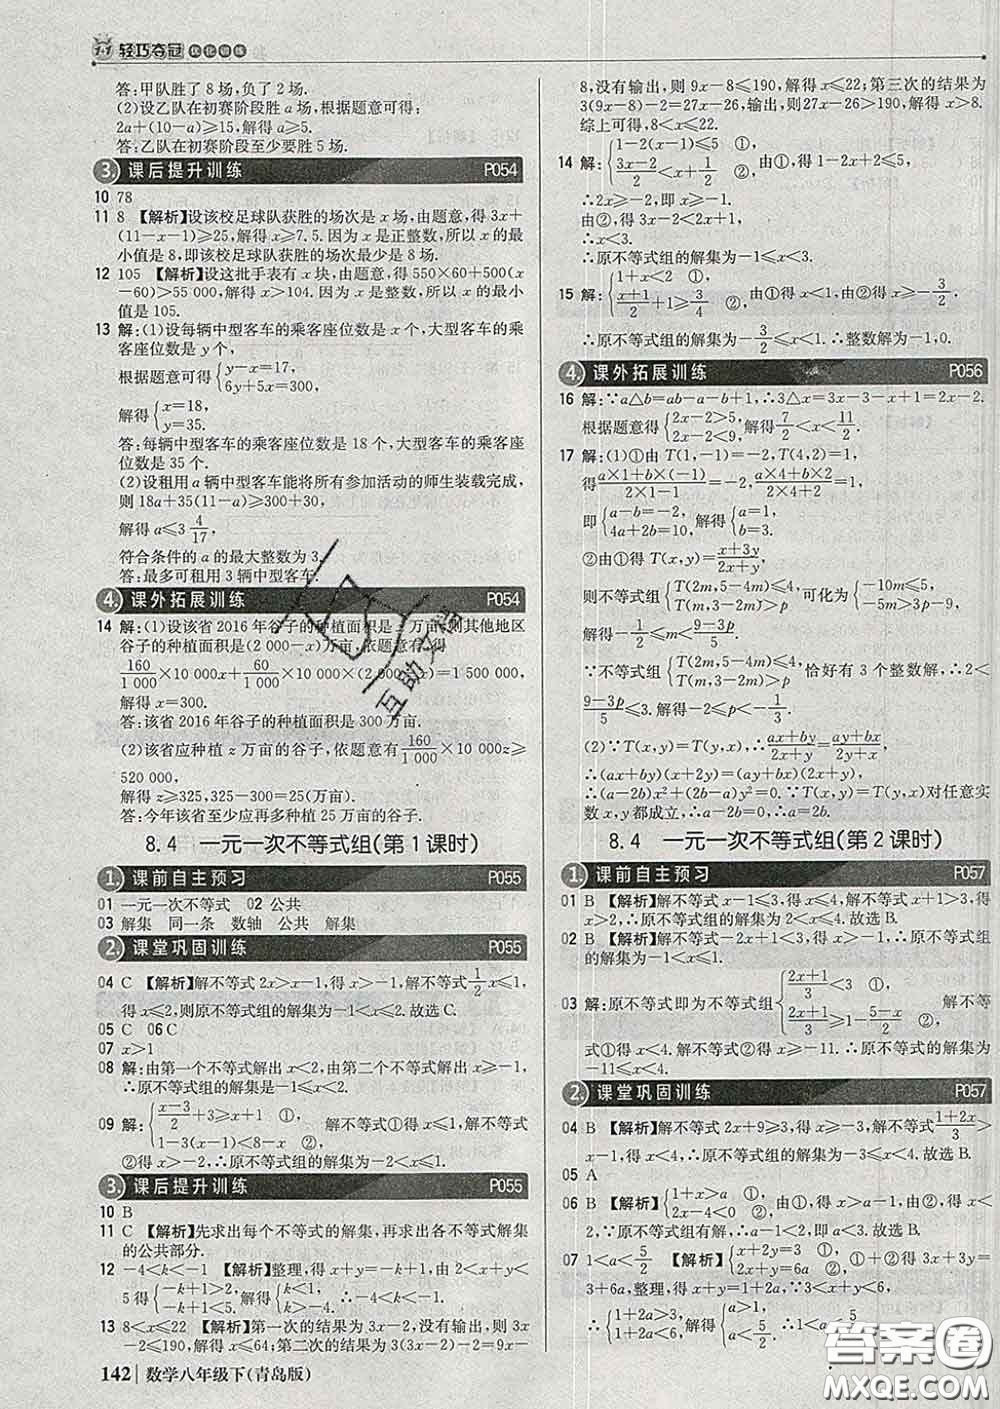 1+1 轻巧夺冠 优化训练
答:甲队胜了 8 场,负了 2 场.
(2)设乙队在初赛阶段胜 a 场,根据题意可得:
2a+(10-a)≥15,解得 a≥5.
答:乙队在初赛阶段至少要胜 5 场.
3. 课后提升训练 P054
10 78
11 8 【解析】设该校足球队获胜的场次是 x 场,由题意,得 3x+
(11-x-1)≥25,解得 x≥7.5.因为 x 是正整数,所以 x 的最
小值是 8,即该校足球队获胜的场次最少是 8 场.
12 105 【解析】设这批手表有 x 块,由题意,得 550×60+500(x
-60)>55 000,解得 x>104.因为 x 是整数,所以 x 的最小
值是 105.
13 解:(1)设每辆中型客车的乘客座位数是 x 个,大型客车的乘
客座位数是 y 个,
根据题意可得 {y-x=17, 6y+5x=300,
解得 {x=18, y=35.
答:每辆中型客车的乘客座位数是 18 个,大型客车的乘客座
位数是 35 个.
(2)设租用 a 辆中型客车能将所有参加活动的师生装载完成,
则 18a+35(11-a)≥300+30,
解得 a≤3 4/17,
符合条件的 a 的最大整数为 3.
答:最多可租用 3 辆中型客车.
4. 课外拓展训练 P054
14 解:(1)设该省 2016 年谷子的种植面积是 x 万亩,则其他地区
谷子的种植面积是(2 000-x)万亩,依题意有得
160/1 000×10 000x+60/1 000×10 000×(2 000-x)=1 500 000,
解得 x=300.
答:该省 2016 年谷子的种植面积是 300 万亩.
(2)设该省应种植 z 万亩的谷子,依题意有 160/1 000×10 000z≥
520 000,
解得 z≥325,325-300=25(万亩).
答:今年该省至少应再多种植 25 万亩的谷子.
8.4 一元一次不等式组(第 1 课时)
1. 课前自主预习 P055
01 一元一次不等式 02 公共
03 解集 同一条 数轴 公共 解集
2. 课堂巩固训练 P055
04 C 【解析】解不等式 2x>x-1,得 x>-1,解不等式 1/2 x≤1,
得 x≤2,则原不等式组的解集为-1<x≤2.故选 C.
05 C 06 C
07 x>1
08 解:由第一个不等式解出 x<2,由第二个不等式解出 x≥-1,
∴原不等式组的解集为-1≤x<2.
09 解:{(x-3)/2+3≥x+1 ①, 1-3(x-1)<8-x ②, 由①得 x≤1,解不等式
②得 x>-2,∴原不等式组的解集为-2<x≤1.
3. 课后提升训练 P055
10 B
11 C 【解析】先求出每个不等式的解集,再求出各不等式解集
的公共部分.
12 -4<k<-1 【解析】整理,得 x+y=-k+1,由 2<x+y<
5得 {-k+1>2, -k+1<5. 得 {k<1, k>-4. ∴-4<k<-1.
13 8<x≤22 【解析】第一次的结果为 3x-2,没有输出,则 3x-
2≤190,解得 x≤64;第二次的结果为 3(3x-2)-2=9x-
142 数学八年级下(青岛版)
8,没有输出,则 9x-8≤190,解得 x≤22;第三次的结果为
3(9x-8)-2=27x-26,输出,则 27x-26>190,解得 x>8.
综上可得,8<x≤22.
14 解:{1-2(x-1)≤5 ①, (3x-2)/2<x+1/2 ②, 由①得,1-2x+2≤5,
∴2x≥-2,即 x≥-1.
由②得,3x-2<2x+1,
∴x<3.
∴原不等式组的解集为-1≤x<3.
15 解:{1+x<2 ①, (x+1)/2+1≥3/4 ②, 由①得 x<1,由②得 x≥-3/2,
∴原不等式组的解集为-3/2≤x<1.∴整数解为-1,0.
4. 课外拓展训练 P056
16 解:∵a△b=ab-a-b+1,∴3△x=3x-3-x+1=2x-2.
根据题意得 {2x-2>5, 2x-2<9, 解得 7/2<x<11/2.
17 解:(1)①由 T(1,-1)=-2,T(4,2)=1,
得 (a×1+b×(-1))/(2×1-1)=-2,(a×4+b×2)/(2×4+2)=1,
即 {a-b=-2, 4a+2b=10, 解得 {a=1, b=3.
②由①得 T(x,y)=(x+3y)/(2x+y),
则不等式组 {T(2m,5-4m)≤4, T(m,3-2m)>p 可化为 {-10m≤5, -5m>3p-9,
解得-1/2≤m<(9-3p)/5.
∵不等式组 {T(2m,5-4m)≤4, T(m,3-2m)>p 恰好有 3 个整数解,∴2<
(9-3p)/5≤3,解得-2≤p<-1/3.
(2)∵T(x,y)=T(y,x),∴(ax+by)/(2x+y)=(ay+bx)/(2y+x).
∴(ax+by)(x+2y)=(ay+bx)(2x+y).
∴(a-2b)x²+(2b-a)y²=0.∵T(x,y)=T(y,x)对任意实
数 x,y 都成立,∴a-2b=0,∴a=2b.
8.4 一元一次不等式组(第 2 课时)
1. 课前自主预习 P057
01 B 【解析】解不等式 x-1≤3,得 x≤4,解不等式 x+1>3,得
x>2,∴原不等式组的解集为 2<x≤4.故选 B.
02 B 【解析】解不等式-2x+1<3,得 x>-1,∴原不等式组
的解集为-1<x≤1.
03 解:原不等式即为不等式组 {(2x+1)/3<3 ①, (2x+1)/3≥1-(5-x)/2 ②, 解不等
式①得 x<4.解不等式②得 x≥-11.∴原不等式的解集为
-11≤x<4.
2. 课堂巩固训练 P057
04 B 【解析】解不等式 2x+9≥3,得 x≥-3,解不等式(1+2x)/3>
x-1,得 x<4,∴原不等式组的解集为-3≤x<4.故选 B.
05 A
06 B 【解析】{1+x>a ①, 2x-4<0 ②, 由①得,x>a-1,由②得,x<
2.∵原不等式组有解,∴a-1<2,即 a<3.故选 B.
07 1<a<5/2 【解析】{x+2y=3 ①, 2x+y=6a ②, ①+②得 3x+3y=
3+6a,整理,得 x+y=1+2a,∵3<x+y<6,
∴{1+2a>3, 1+2a<6. ∴{a>1, a<5/2. ∴1<a<5/2.
互助文档
答案圈
MXQE.COM